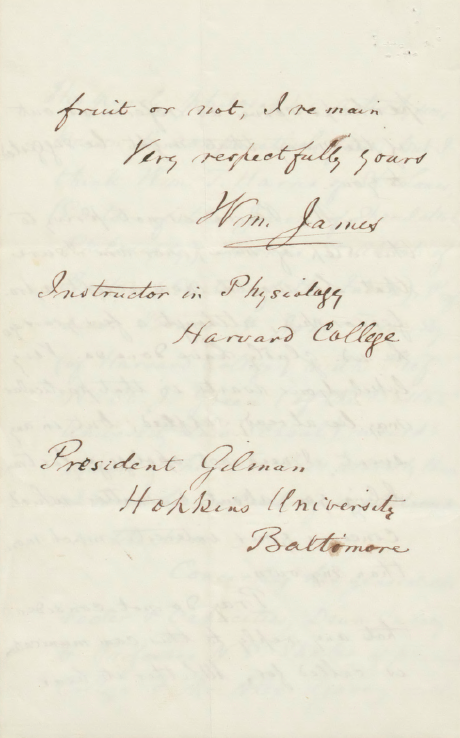 fruit or not, I remain
Very respectfully yours
Wm. James
Instructor in Physiology
Harvard College
President Gilman
Hopkins University
Baltimore